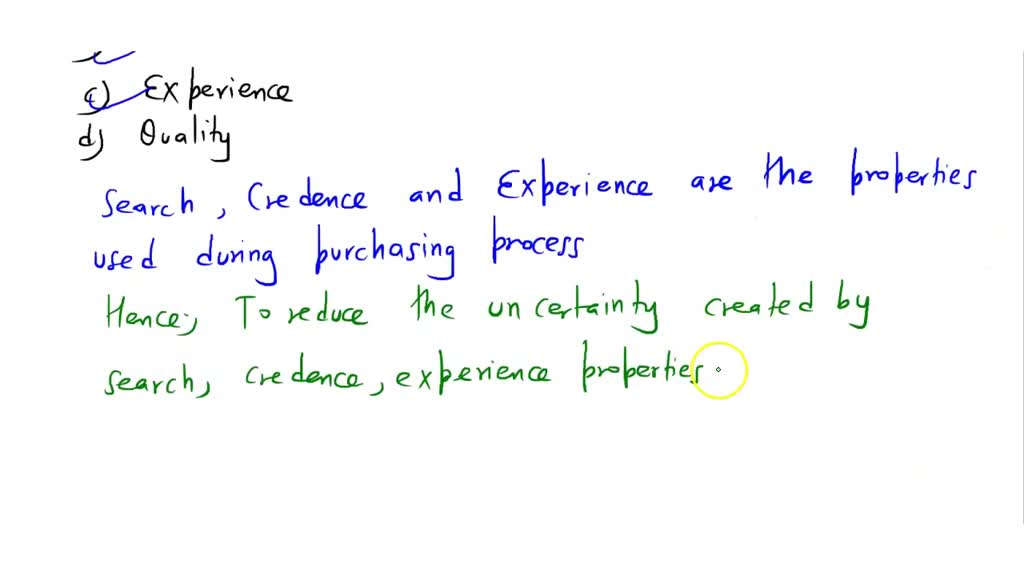 c) Experience
d) Quality
Search, Credence and Experience are the properties
used during purchasing process
Hence, To reduce the uncertainty created by
search, credence, experience properties.